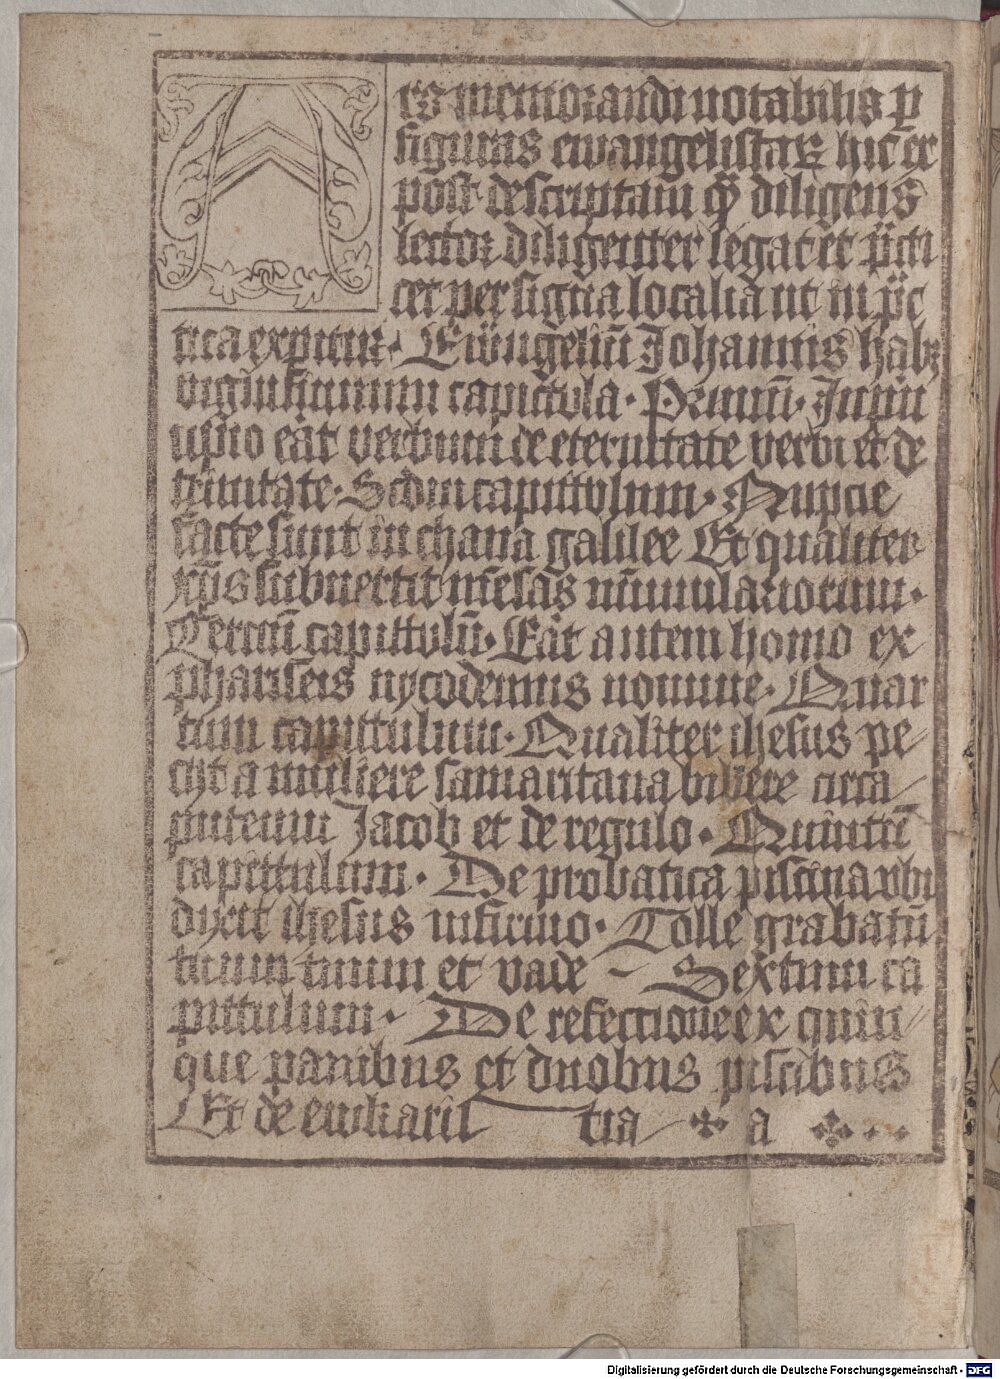 Ars memorandi notabilis ꝑ
figuras ewangelistaꝝ hic ex
post descriptam qȝ̄ diligens
lector diligenter legat et p̄cti
cet per signa localia ut in p̄c
tica expitur· Ewūgeliū Johannis habꝫ
viginti unum capictvla· Primū· In pn̄
cipio erāt verbum de eternitate verbi et de
trinitate· Scdm capittvlum· Nupcie
facte sunt in chana galilee Et qualiter
xp̄s subuertit mēsas nūmulariorum·
Terciū capittvlū· Erāt autem homo ex
phariseis nycodemus nomine· Quar
tum capittulum· Qualiter ihesus pe
cijt a muliere samaritana bibere circa
puteum Jacob et de regulo· Quintū
capittulum· De probatica piscina vbi
dixit ihesus infirmo· Tolle grabatū
tuum et vade Sextum ca
pittulum· De refectione ex quin
que panibus et duobus piscibus
Et de ewkaristia a
Digitalisierung gefördert durch die Deutsche Forschungsgemeinschaft - DFG